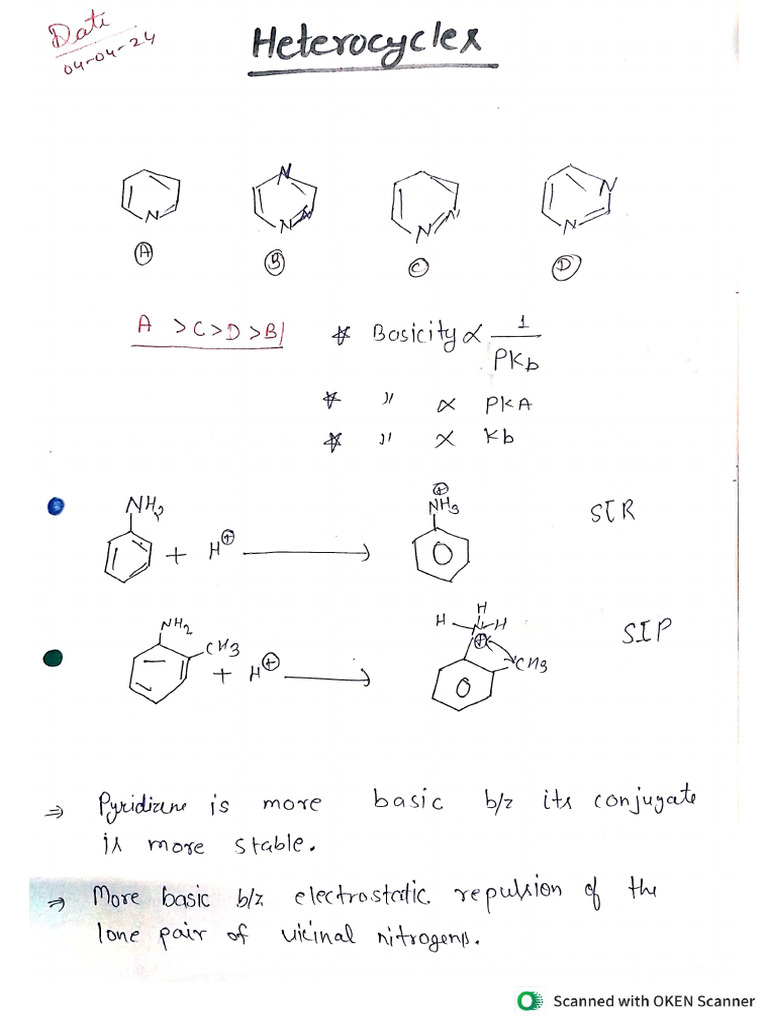 Date
04-04-24
Heterocycles
N
N
N N
N N
N
N
A
B
C
D
A > C > D > B
* Basicity ∝ 1
PKb
* " ∝ PKA
* " ∝ Kb
NH2
+ H⊕
⊕
NH3
SIR
NH2
CH3
+ H⊕
H
H N H
⊕
CH3
SIP
⇒ Pyridizene is more basic b/z its conjugate
is more stable.
⇒ More basic b/z electrostatic repulsion of the
lone pair of vicinal nitrogens.
Scanned with OKEN Scanner